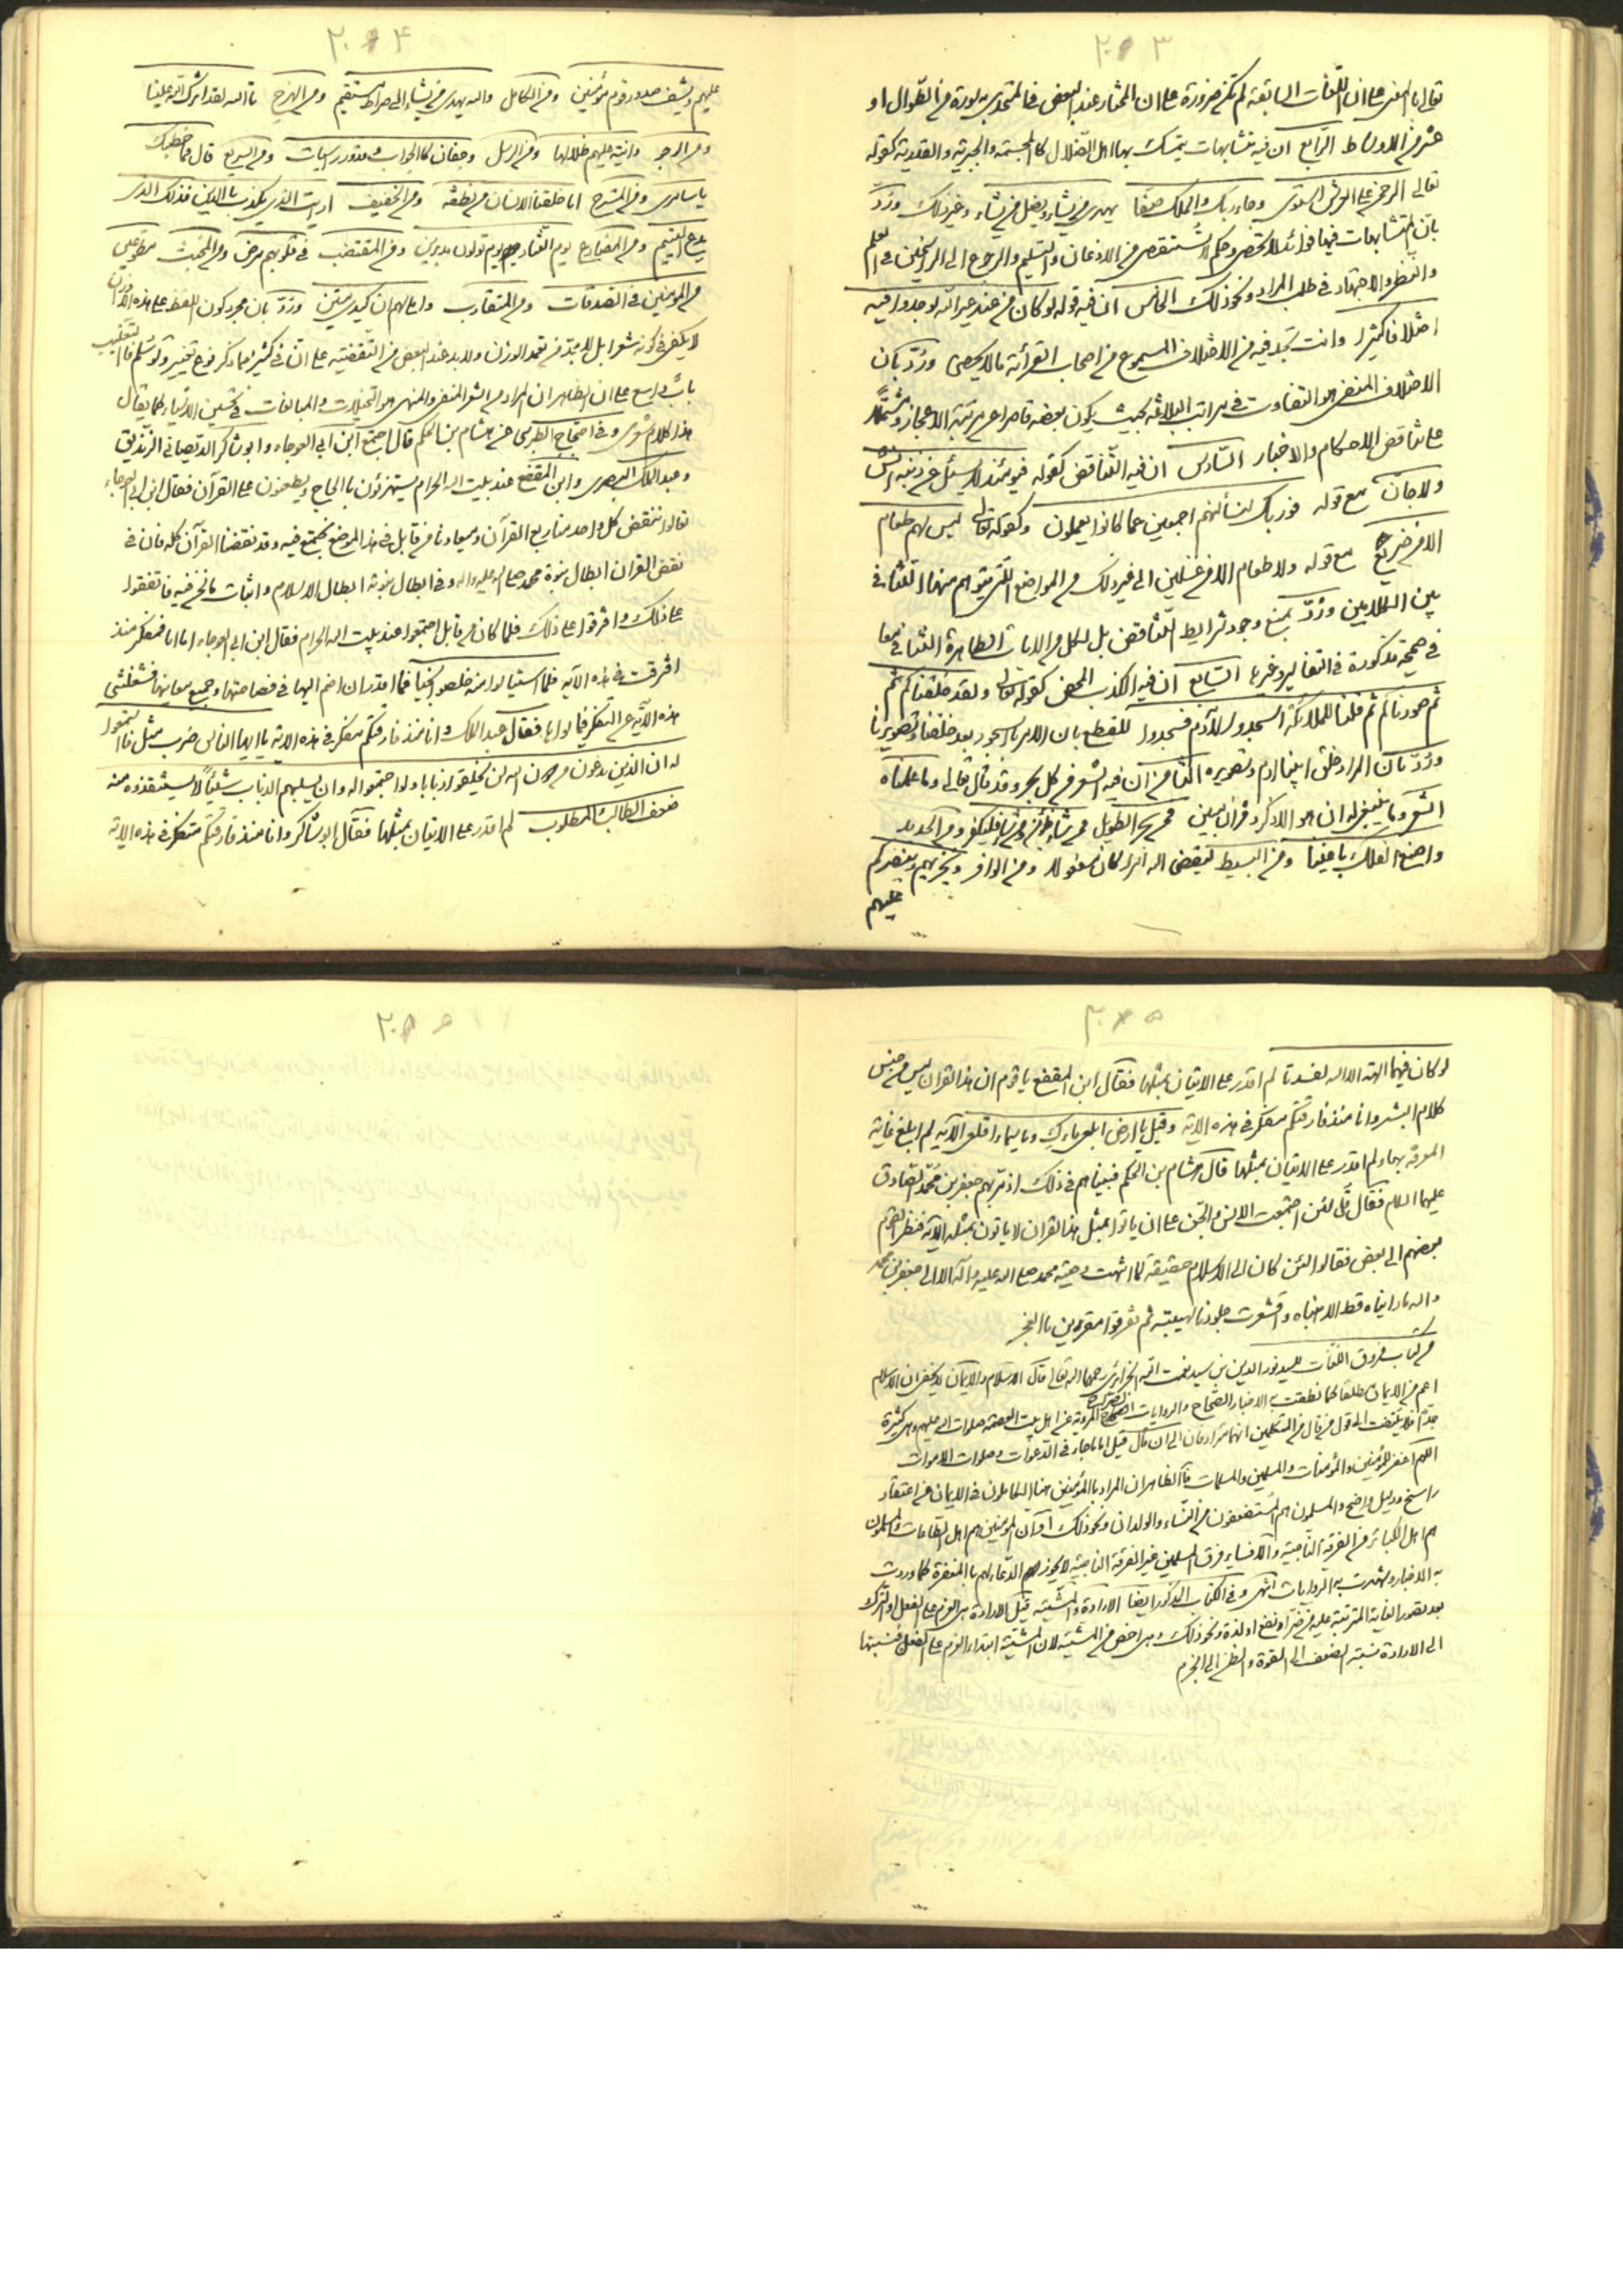 ٢٠٣
تعالى المفسر على ان اللغات السابعة لم تكن ضرورة على ان المختار عند البعض في المتحدى به سورة من الطوال او
عشر من الاوساط الرابع ان فيه متشابهات يتمسك بها اهل الضلال كالمجسمة والجبرية والقدرية كقوله
تعالى الرحمن على العرش استوى وجاء ربك والملك صفا يهدى من يشاء ويضل من يشاء وغير ذلك وردّ
بان المتشابهات فيها فوائد لا تحصر وحكم لا تستقصى من الاذعان والتسليم والرجوع الى الراسخين في العلم
والنظر والاجتهاد في طلب المراد ونحو ذلك الخامس ان فيه قوله لو كان من عند غير الله لوجدوا فيه
اختلافا كثيرا وانت تجد فيه من الاختلاف المسموع من اصحاب القرائة ما لا يحصى وردّ بان
الاختلاف المنفى هو التفاوت في مراتب البلاغة بحيث يكون بعضه قاصرا عن مرتبة الاعجاز ومشتملا
على تناقض الاحكام والاخبار السادس ان فيه التناقض كقوله فيومئذ لا يسئل عن ذنبه انس
ولا جان مع قوله فوربك لنسألنهم اجمعين عما كانوا يعملون وكقوله تعالى ليس لهم طعام
الا من ضريع مع قوله ولا طعام الا من غسلين الى غير ذلك من المواضع التى يتوهم منها التنافى
بين الكلامين وردّ بمنع وجود شرايط التناقض بل لكل من الايات الظاهرة التنافى معا
نى صحيحة مذكورة في التفاسير وغيرها السابع ان فيه الكذب المحض كقوله تعالى ولقد خلقناكم ثم
ثم صورناكم ثم قلنا للملائكة اسجدوا لآدم فسجدوا للقطع بان الامر بالسجود بعد خلقنا وتصويرنا
وردّ بان المراد خلق ابينا ادم وتصويره الثامن ان فيه الشعر من كل بحر وقد قال تعالى وما علمناه
الشعر وما ينبغى له ان هو الا ذكر وقران مبين فمن بحر الطويل فمن شاء فليؤمن ومن شاء فليكفر ومن المديد
واصنع الفلك باعيننا ومن البسيط ليقضى الله امرا كان مفعولا ومن الوافر ويخزهم وينصركم
عليهم
٢٠٤
عليهم ويشف صدور قوم مؤمنين ومن الكامل والله يهدى من يشاء الى صراط مستقيم ومن الهزج تا الله لقد اثرك الله علينا
ومن الرجز ودانية عليهم ظلالها ومن الرمل وجفان كالجواب وقدور راسيات ومن السريع قال فما خطبك
يا سامرى ومن المنسرح انا خلقنا الانسان من نطفة ومن الخفيف ارايت الذى يكذب بالدين فذلك الذى
يدع اليتيم ومن المضارع يوم التناد يوم تولون مدبرين ومن المقتضب في قلوبهم مرض ومن المجتث مطوعين
من المؤمنين في الصدقات ومن المتقارب واملى لهم ان كيدى متين وردّ بان مجرد كون اللفظ على هذه الاوزان
لا يكفى في كونه شعرا بل لابد من تعمد الوزن ولابد عند البعض من التقفية على ان في كثير مما ذكر نوع تغيير ولو سلم فالتغليب
باب واسع على ان الظاهر ان المراد من الشعر المنفى والمنهى هو التخيلات والمبالغات في تحسين الاشياء كما يقال
هذا كلام شعرى وفي احتجاج الطبرسى عن هشام بن الحكم قال اجتمع ابن ابى العوجاء وابو شاكر الديصانى الزنديق
وعبد الملك البصرى وابن المقفع عند بيت الله الحرام يستهزئون بالحاج ويطعنون على القرآن فقال ابن ابى العوجاء
تعالوا ننقض كل واحد منا ربع القرآن وميعادنا من قابل في هذا الموضع نجتمع فيه وقد نقضنا القرآن كله فان في
نقض القران ابطال نبوة محمد صلى الله عليه واله وفي ابطال نبوته ابطال الاسلام واثبات ما نحن فيه فاتفقوا
على ذلك وافترقوا على ذلك فلما كان من قابل اجتمعوا عند بيت الله الحرام فقال ابن ابى العوجاء اما انا فمفكر منذ
افترقت في هذه الآية فلما استيأسوا منه خلصوا نجيا فما اقدر ان اضم اليها في فصاحتها وجميع معانيها فشغلتنى
هذه الآية عن التفكر فيما سواها فقال عبد الملك وانا منذ فارقتكم مفكر في هذه الاية يا ايها الناس ضرب مثل فاستمعوا
له ان الذين يدعون من دون الله لن يخلقوا ذبابا ولو اجتمعوا له وان يسلبهم الذباب شيئا لا يستنقذوه منه
ضعف الطالب والمطلوب لم اقدر على الاتيان بمثلها فقال ابو شاكر وانا منذ فارقتكم متفكر في هذه الاية
٢٠٥
لو كان فيهما الهة الا الله لفسدتا لم اقدر على الاتيان بمثلها فقال ابن المقفع يا قوم ان هذا القران ليس من جنس
كلام البشر وانا منذ فارقتكم مفكر في هذه الاية وقيل يا ارض ابلعى ماءك ويا سماء اقلعى الآية لم ابلغ غاية
المعرفة بها ولم اقدر على الاتيان بمثلها قال هشام بن الحكم فبينا هم في ذلك اذ مر بهم جعفر بن محمد الصادق
عليهما السلام فقال قل لئن اجتمعت الانس والجن على ان ياتوا بمثل هذا القران لا ياتون بمثله الآية فنظر القوم
بعضهم الى بعض فقالوا لئن كان للاسلام حقيقة لما انتهت وصية محمد صلى الله عليه وآله الا الى جعفر بن محمد
والله ما رايناه قط الا هبناه واقشعرت جلودنا لهيبته ثم تفرقوا مقرين بالعجز
من كتاب فروق اللغات للسيد نور الدين بن سيد نعمت الله الجزائرى رحمهما الله تعالى قال الاسلام والايمان لا يخفى ان الاسلام
اعم من الايمان مطلقا كما نطقت به الاخبار الصحاح والروايات الصراح المروية عن اهل بيت العصمة صلوات الله عليهم وهى كثيرة
جدا فلا يلتفت الى قول من قال من المتكلمين انهما مترادفان الى ان قال قيل اما ما جاء في الدعوات وصلوات الاموات
اللهم اغفر للمؤمنين والمؤمنات والمسلمين والمسلمات فالظاهر ان المراد بالمؤمنين هنا الكاملون في الايمان من اعتقاد
راسخ ودليل واضح والمسلمون هم المستضعفون من النساء والولدان ونحو ذلك او ان المؤمنين هم اهل الطاعات والمسلمون
هم اهل الكبائر من الفرقة الناجية والا فساير فرق المسلمين غير الفرقة الناجية لا يجوز الدعاء لهم بالمغفرة كما وردت
به الاخبار وشهدت به الروايات انتهى وفي الكتاب المذكور ايضا الارادة والمشية قيل الارادة هى العزم على الفعل او الترك
بعد تصور الغاية المترتبة عليه من خير او نفع او لذة ونحو ذلك وهى اخص من المشية لان المشية ابتداء العزم على الفعل فنسبتها
الى الارادة نسبة الضعف الى القوة والظن الى الجزم